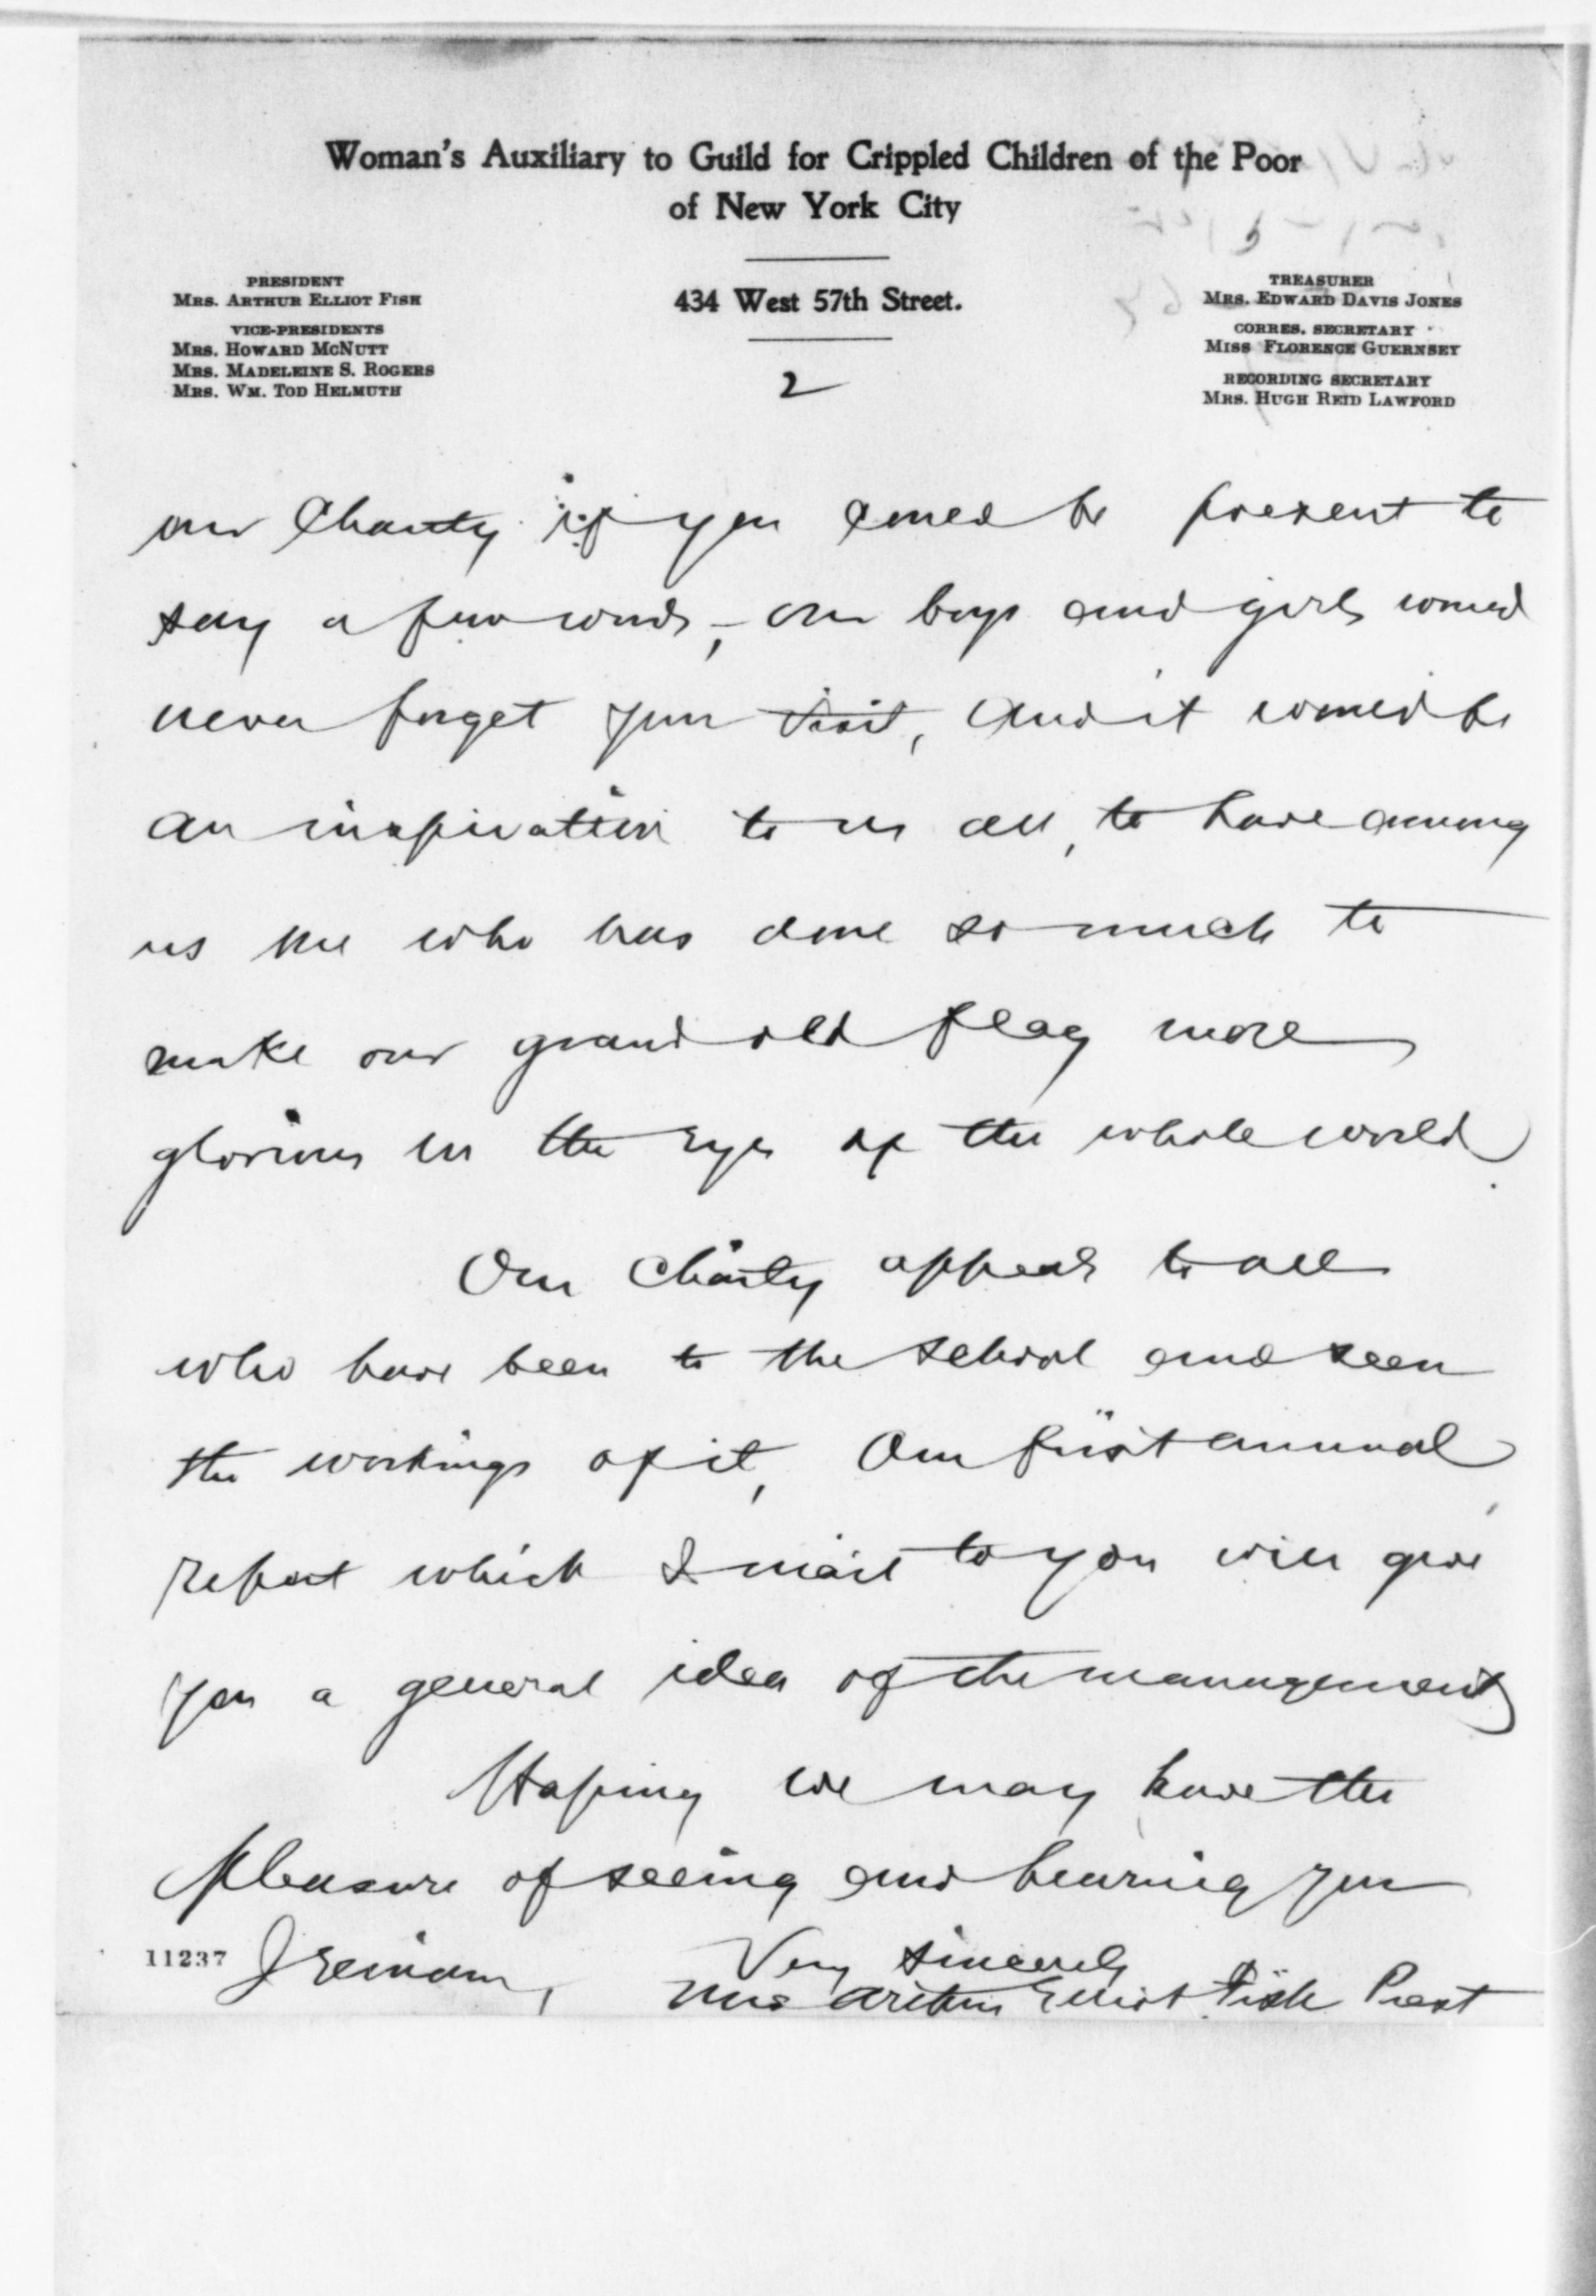 Woman's Auxiliary to Guild for Crippled Children of the Poor
of New York City
434 West 57th Street.
PRESIDENT
MRS. ARTHUR ELLIOT FISH
VICE-PRESIDENTS
MRS. HOWARD MCNUTT
MRS. MADELEINE S. ROGERS
MRS. WM. TOD HELMUTH
TREASURER
MRS. EDWARD DAVIS JONES
CORRES. SECRETARY
MISS FLORENCE GUERNSEY
RECORDING SECRETARY
MRS. HUGH REID LAWFORD
2
our Charity if you could be present to
say a few words, - Our boys and girls would
never forget your visit, and it would be
an inspiration to us all, to have among
us one who has done so much to
make our grand old flag more
glorious in the eyes of the whole world.
Our Charity appeals to all
who have been to the school and seen
the workings of it, Our first annual
report which I mail to you will give
you a general idea of the management
Hoping we may have the
pleasure of seeing and hearing you
I remain,
Very sincerely
Mrs Arthur Elliot Fish Prest
11237